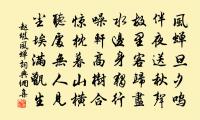 風蟬旦夕鳴
伴夜送秋聲
故里客歸盡
水邊身獨行
噪軒高樹合
驚枕暮山橫
聽處無人見
塵埃滿甑生
趙嘏風蟬詞典網集